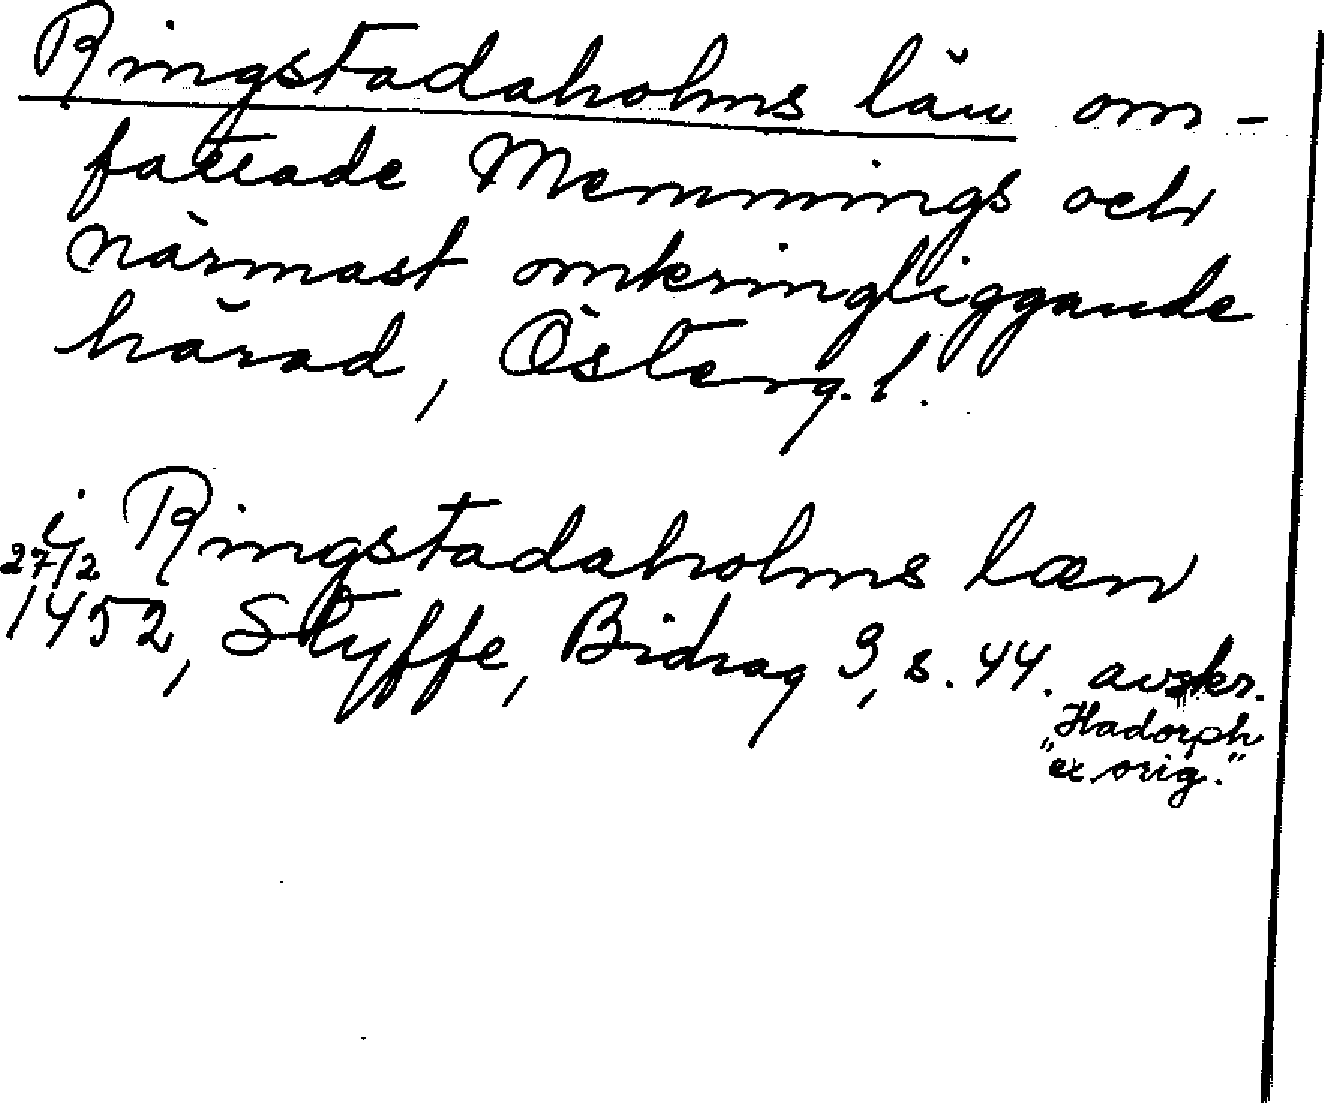 Ringstadaholms län om-
fattade Memmings och
närmast omkringliggande
härad, Österg. l.
i Ringstadaholms læn
27/2
1452, Styffe, Bidrag 3, s. 44. avskr.
Hadorph
"ex orig."